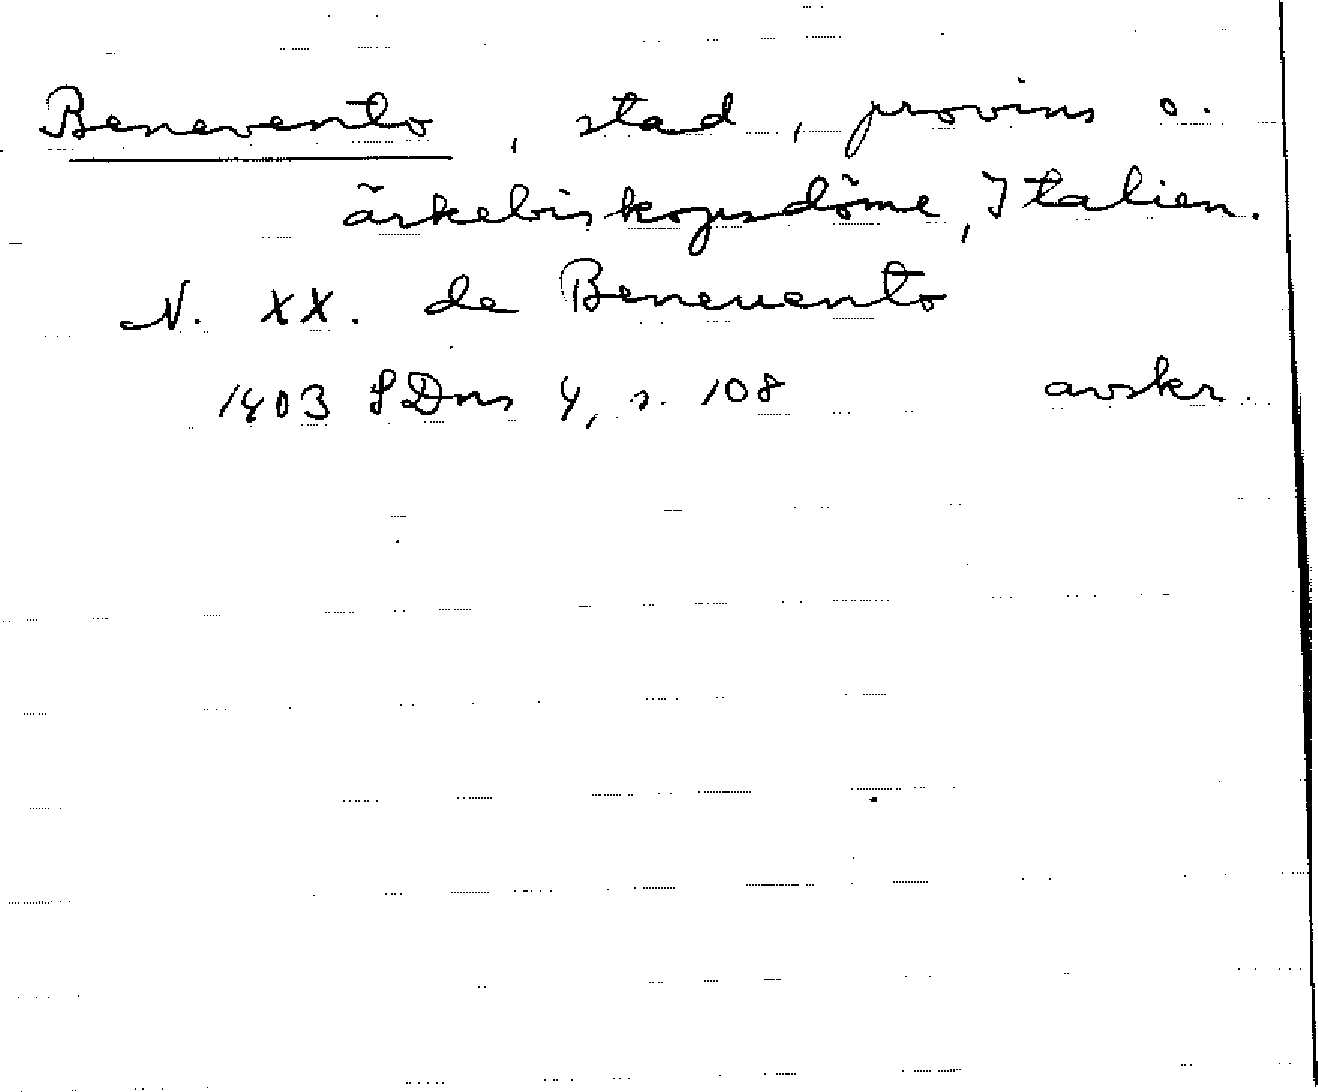 Benevento, stad, provins o.
ärkebiskopsdöme, Italien.
N. XX. de Beneuento
1403 SDns 4, s. 108 avskr.